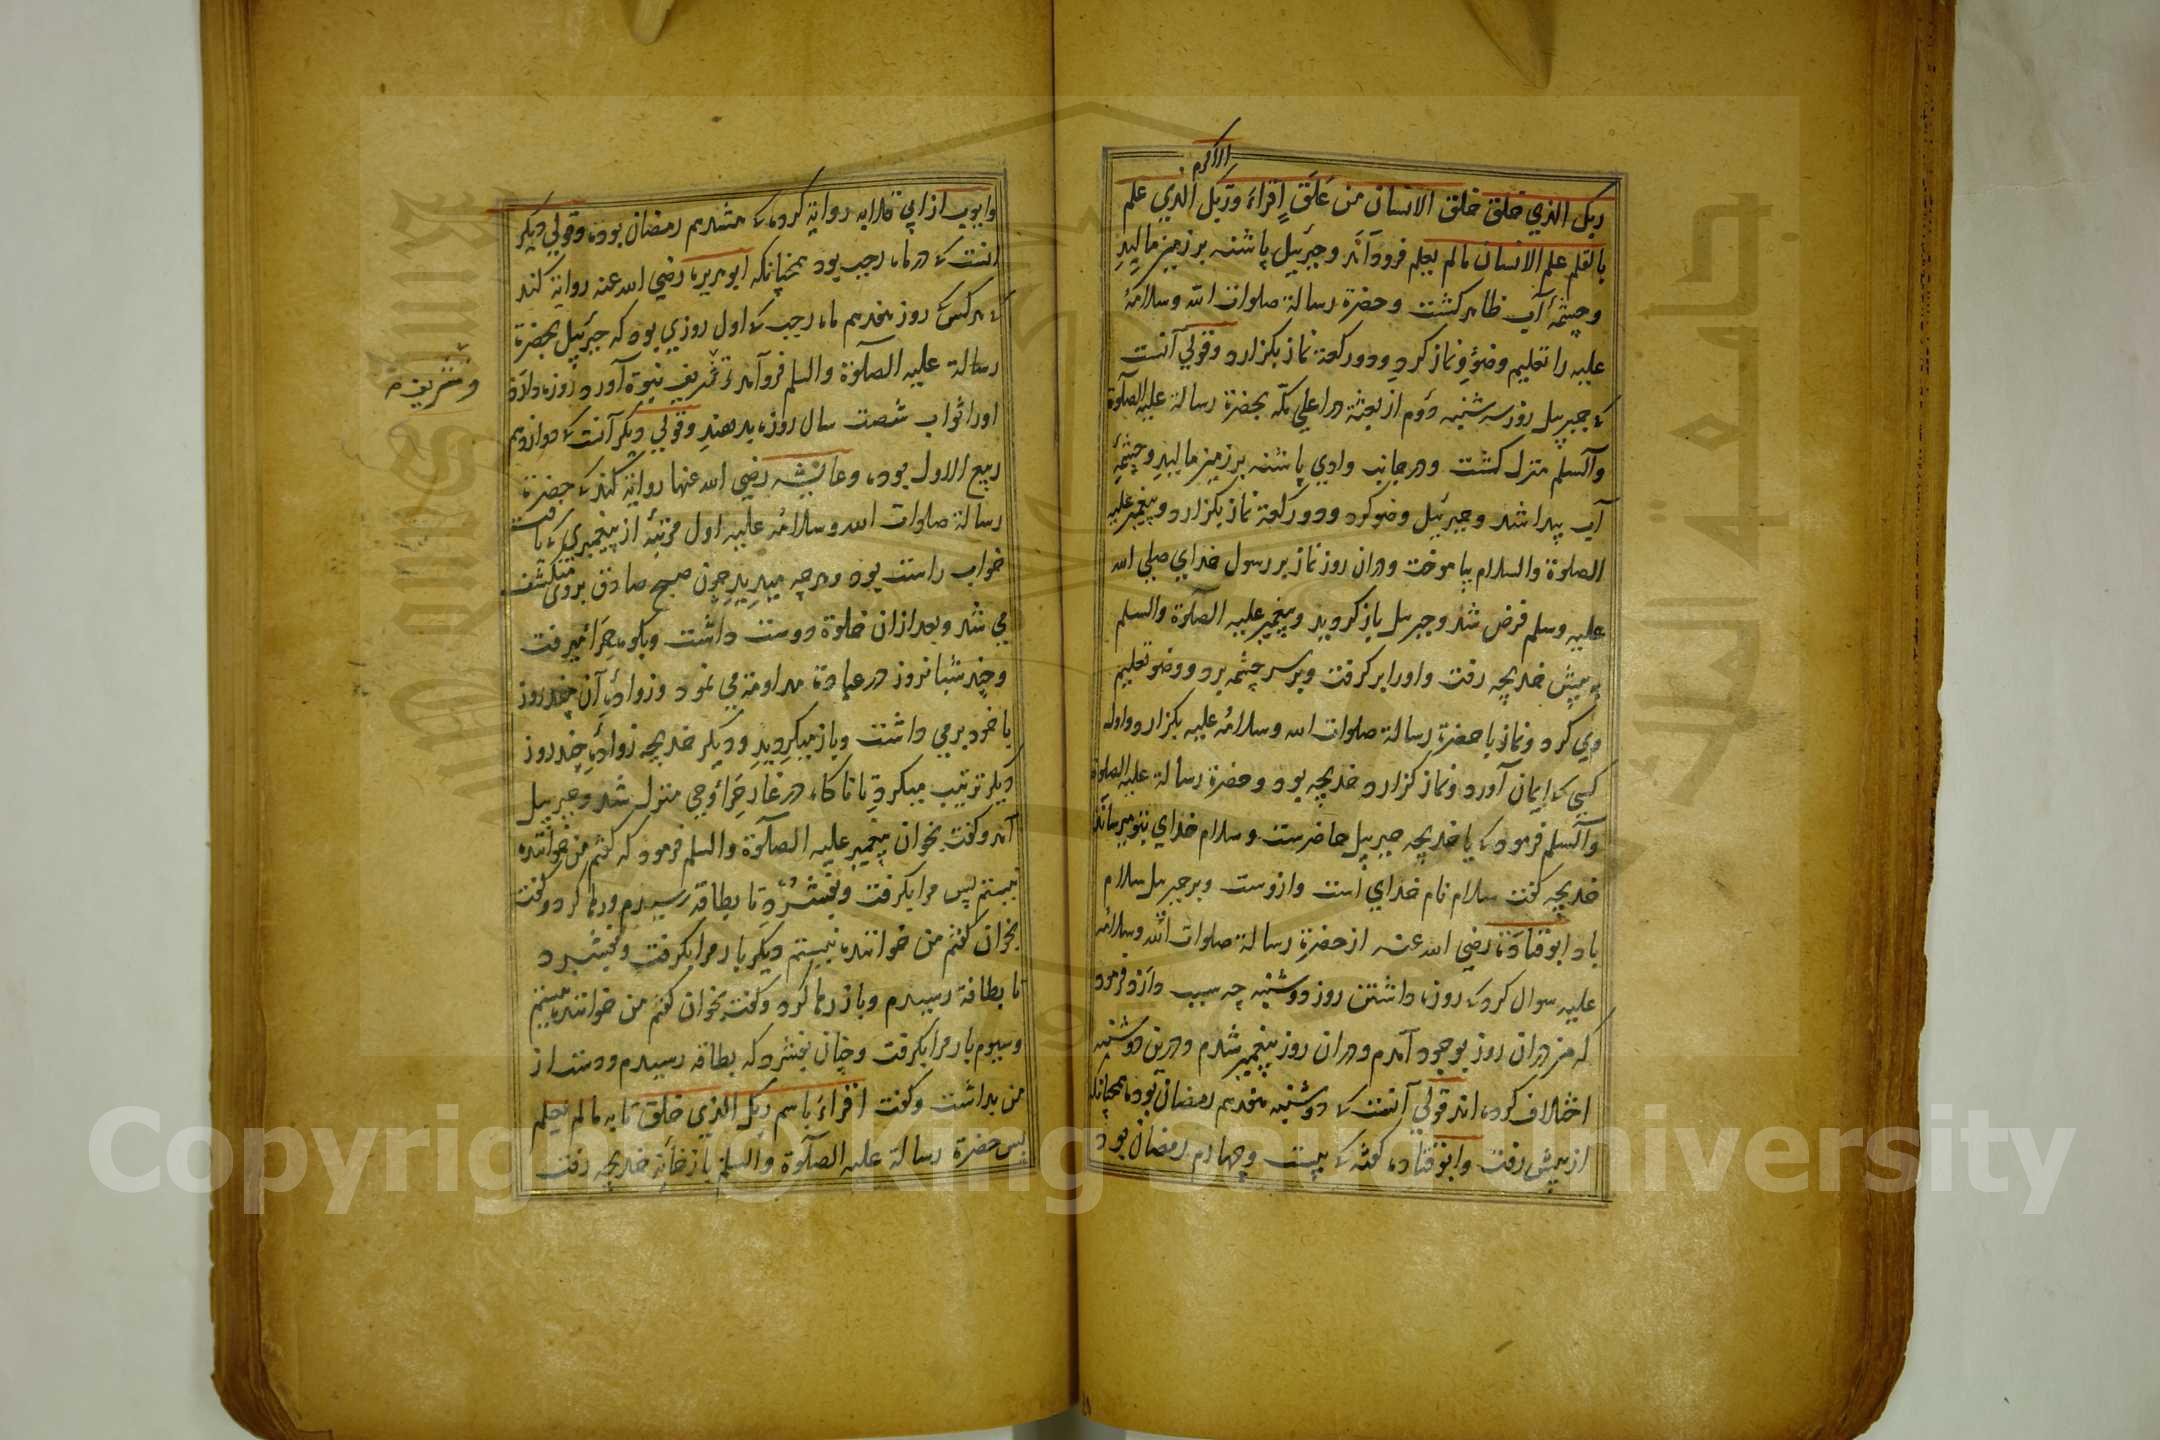 الاكرم
ربك الذي خلق خلق الانسان من علق اقراء وربك الذي علم
بالقلم علم الانسان مالم يعلم فرود آمد وجبرئيل پاشنه بر زمين ماليد
وچشمهٔ آب ظاهر كشت وحضرة رسالة صلوات الله وسلامهٔ
عليه را تعليم وضوء ونماز كرد ودو ركعة نماز بكزارد وقولي آنست
كه جبرييل روز سه شنبه دوم از بعثة در اعلي مكه بحضرة رسالة عليه الصلوة
والسلم منزل كشت ودر جانب وادي پاشنه بر زمين ماليد وچشمهٔ
آب پيدا شد وجبرئيل وضو كرد ودو ركعة نماز بكزارد وپيغمبر عليه
الصلوة والسلام بياموخت ودران روز نماز بر رسول خداي صلي الله
عليه وسلم فرض شد وجبريل باز كرويد وپيغمبر عليه الصلوة والسلم
به پيش خديجه رفت واورا بر كرفت وبر سر چشمه برد ووضو تعليم
وي كرد ونماز با حضرة رسالة صلوات الله وسلامهٔ عليه بكزارد واول
كسي كه ايمان آورد ونماز كزارد خديجه بود وحضرة رسالة عليه الصلوة
والسلم فرمود كه يا خديجه جبرييل حاضرست وسلام خداي بتو ميرساند
خديجه كفت سلام نام خداي است وازوست وبر جبريل سلام
باد ابو قتادة رضي الله عنه از حضرة رسالة صلوات الله وسلامه
عليه سوال كرد كه روزه داشتن روز دوشنبه چه سبب دارد فرمود
كه من دران روز بوجود آمدم ودران روز پيغمبر شدم ودرين دوشنبه
اختلاف كرده اند قولي آنست كه دوشنبه هفدهم رمضان بود همچنانكه
از پيش رفت وابو قتاده كفته كه بيست وچهارم رمضان بود
وايوب از ابي قلابه رواية كرده كه هشدهم رمضان بوده وقولي ديكر
انست كه در ماه رجب بود همچنانكه ابو هريره رضي الله عنه رواية كند
كه هر كس كه روز هفدهم ماه رجب كه اول روزي بود كه جبرئيل بحضرة
رسالة عليه الصلوة والسلم فرو آمد وتشريف نبوة آورد روزه دارد
وتشريف
اورا ثواب شصت سال روزه بدهند وقولي ديكر آنست كه دوازدهم
ربيع الاول بوده وعايشه رضي الله عنها رواية كند كه حضرة
رسالة صلوات الله وسلامهٔ عليه اول مرتبهٔ از پيغمبري كه يافت
خواب راست بود وهرچه ميديد چون صبح صادق برو منكشف
مي شد وبعد ازان خلوة دوست داشت وبكوه حراء ميرفت
وچند شبانروز در عبادة مداومة مي نمود وزوادهٔ آن چند روز
با خود بر مي داشت وباز ميكرديد وديكر خديجه زوادهٔ چند روز
ديكر ترتيب ميكرد تا ناكاه در غار حراء وحي منزل شد وجبرييل
آمد وكفت بخوان پيغمبر عليه الصلوة والسلم فرمود كه كفتم من خواننده
نيستم پس مرا بكرفت وبفشرد تا بطاقة رسيدم ورها كرد وكفت
بخوان كفتم من خواننده نيستم ديكر بار مرا بكرفت وبفشرد
تا بطاقة رسيدم وباز رها كرد وكفت بخوان كفتم من خواننده نيستم
وسيوم بار مرا بكرفت وچنان بفشرد كه بطاقه رسيدم ودست از
من بداشت وكفت اقراء باسم ربك الذي خلق تا به مالم يعلم
پس حضرة رسالة عليه الصلوة والسلم باز خانه خديجه رفت
Copyright © King Saud University